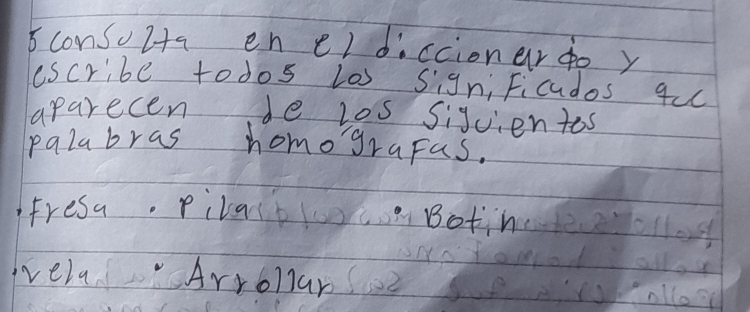 5 consulta en el diccionardo y
escribe todos los significados que
aparecen de los siguientes
palabras homógrafas.
• Fresa • Pila • Botin
• vela • Arrollar